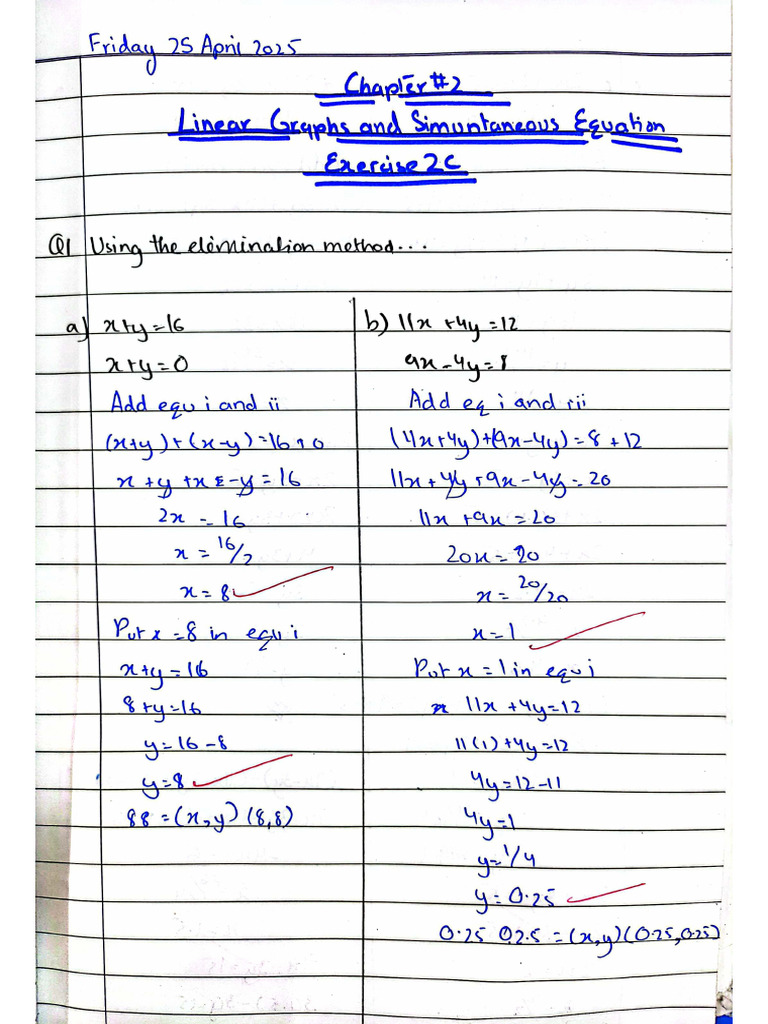 Friday 25 April 2025
Chapter #2
Linear Graphs and Simuntaneous Equation
Exercise 2C
Q1 Using the elemination method...
a) x+y=16
x+y=0
Add equ i and ii
(x+y)+(x-y)=16+0
x+y+x-y=16
2x=16
x=16/2
x=8
Put x=8 in equ i
x+y=16
8+y=16
y=16-8
y=8
88=(x,y)(8,8)
b) 11x+4y=12
9x-4y=8
Add eq i and ii
(4x+4y)+(9x-4y)=8+12
11x+4y+9x-4y=20
11x+9x=20
20x=20
x=20/20
x=1
Put x=1 in equ i
11x+4y=12
11(1)+4y=12
4y=12-11
4y=1
y=1/4
y=0.25
0.25 02.5=(x,y)(0.25,0.25)